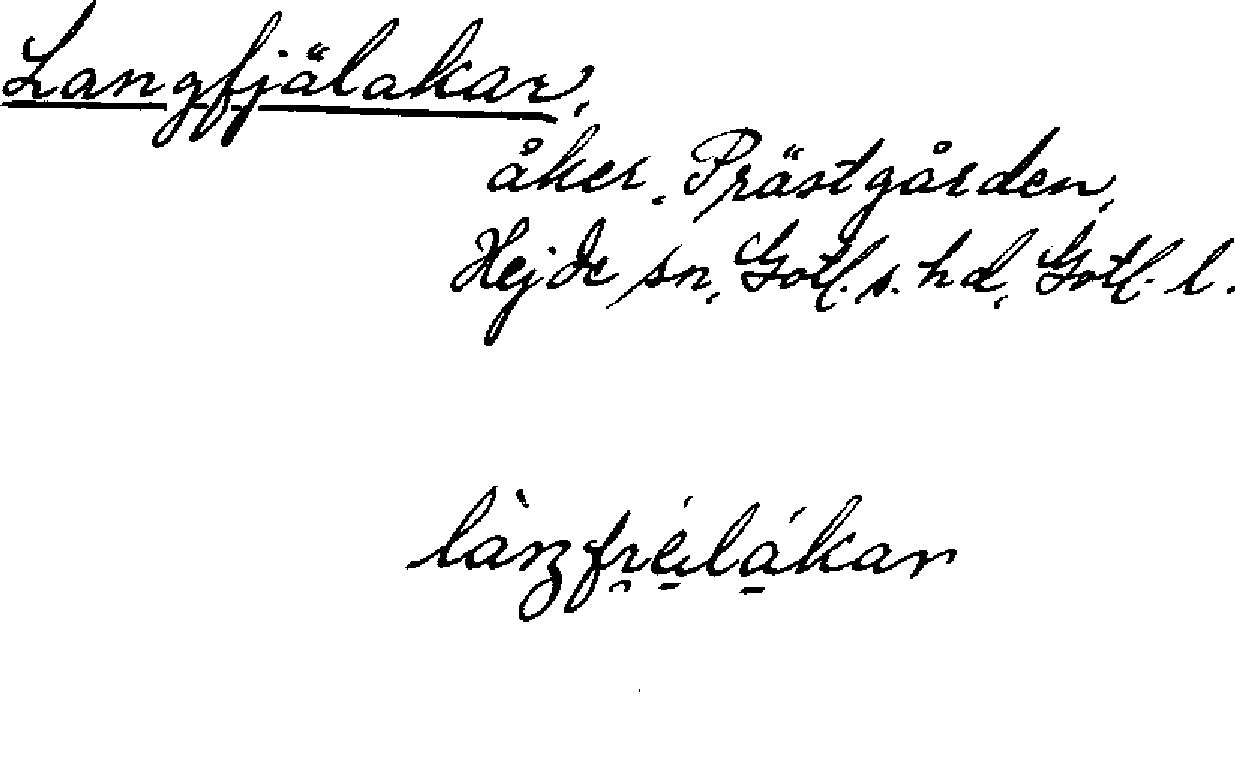 Langfjälakar,
åker, Prästgården,
Hejde sn, Gotl. s. hd, Gotl. l.